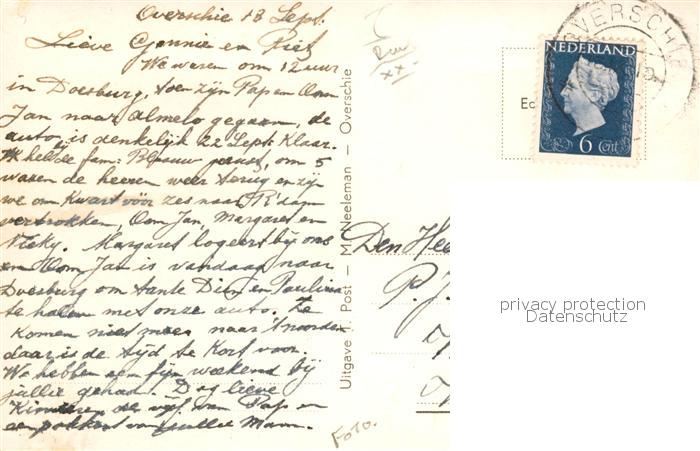 Overschie 13 Sept.
Lieve Gonnie en Piet
We waren om 12 uur
in Doesburg, toen zijn Pap en Oom
Jan naar Almelo gegaan, de
auto is denkelijk 22 Sept. klaar.
Ik heb de fam: om 5
waren de heeren weer terug en zijn
we om kwart vóór zes naar R'dam
vertrokken, Oom Jan, Margaret en
Vicky. Margaret logeert bij ons
en Oom Jan is vandaag naar
Doesburg om tante Dien en Paulien
te halen met onze auto. Ze
komen niet meer naar 't noorden
daar is de tijd te kort voor.
We hebben een fijn weekend bij
jullie gehad. Dag lieve
Kinderen, de van Pap en
een pakkerd van jullie Mam.
Uitgave J. Post – M. Neeleman – Overschie
xx
Foto.
VERSCHIE
NEDERLAND
6 cent
Ec
Den Hee
P. J.
privacy protection
Datenschutz